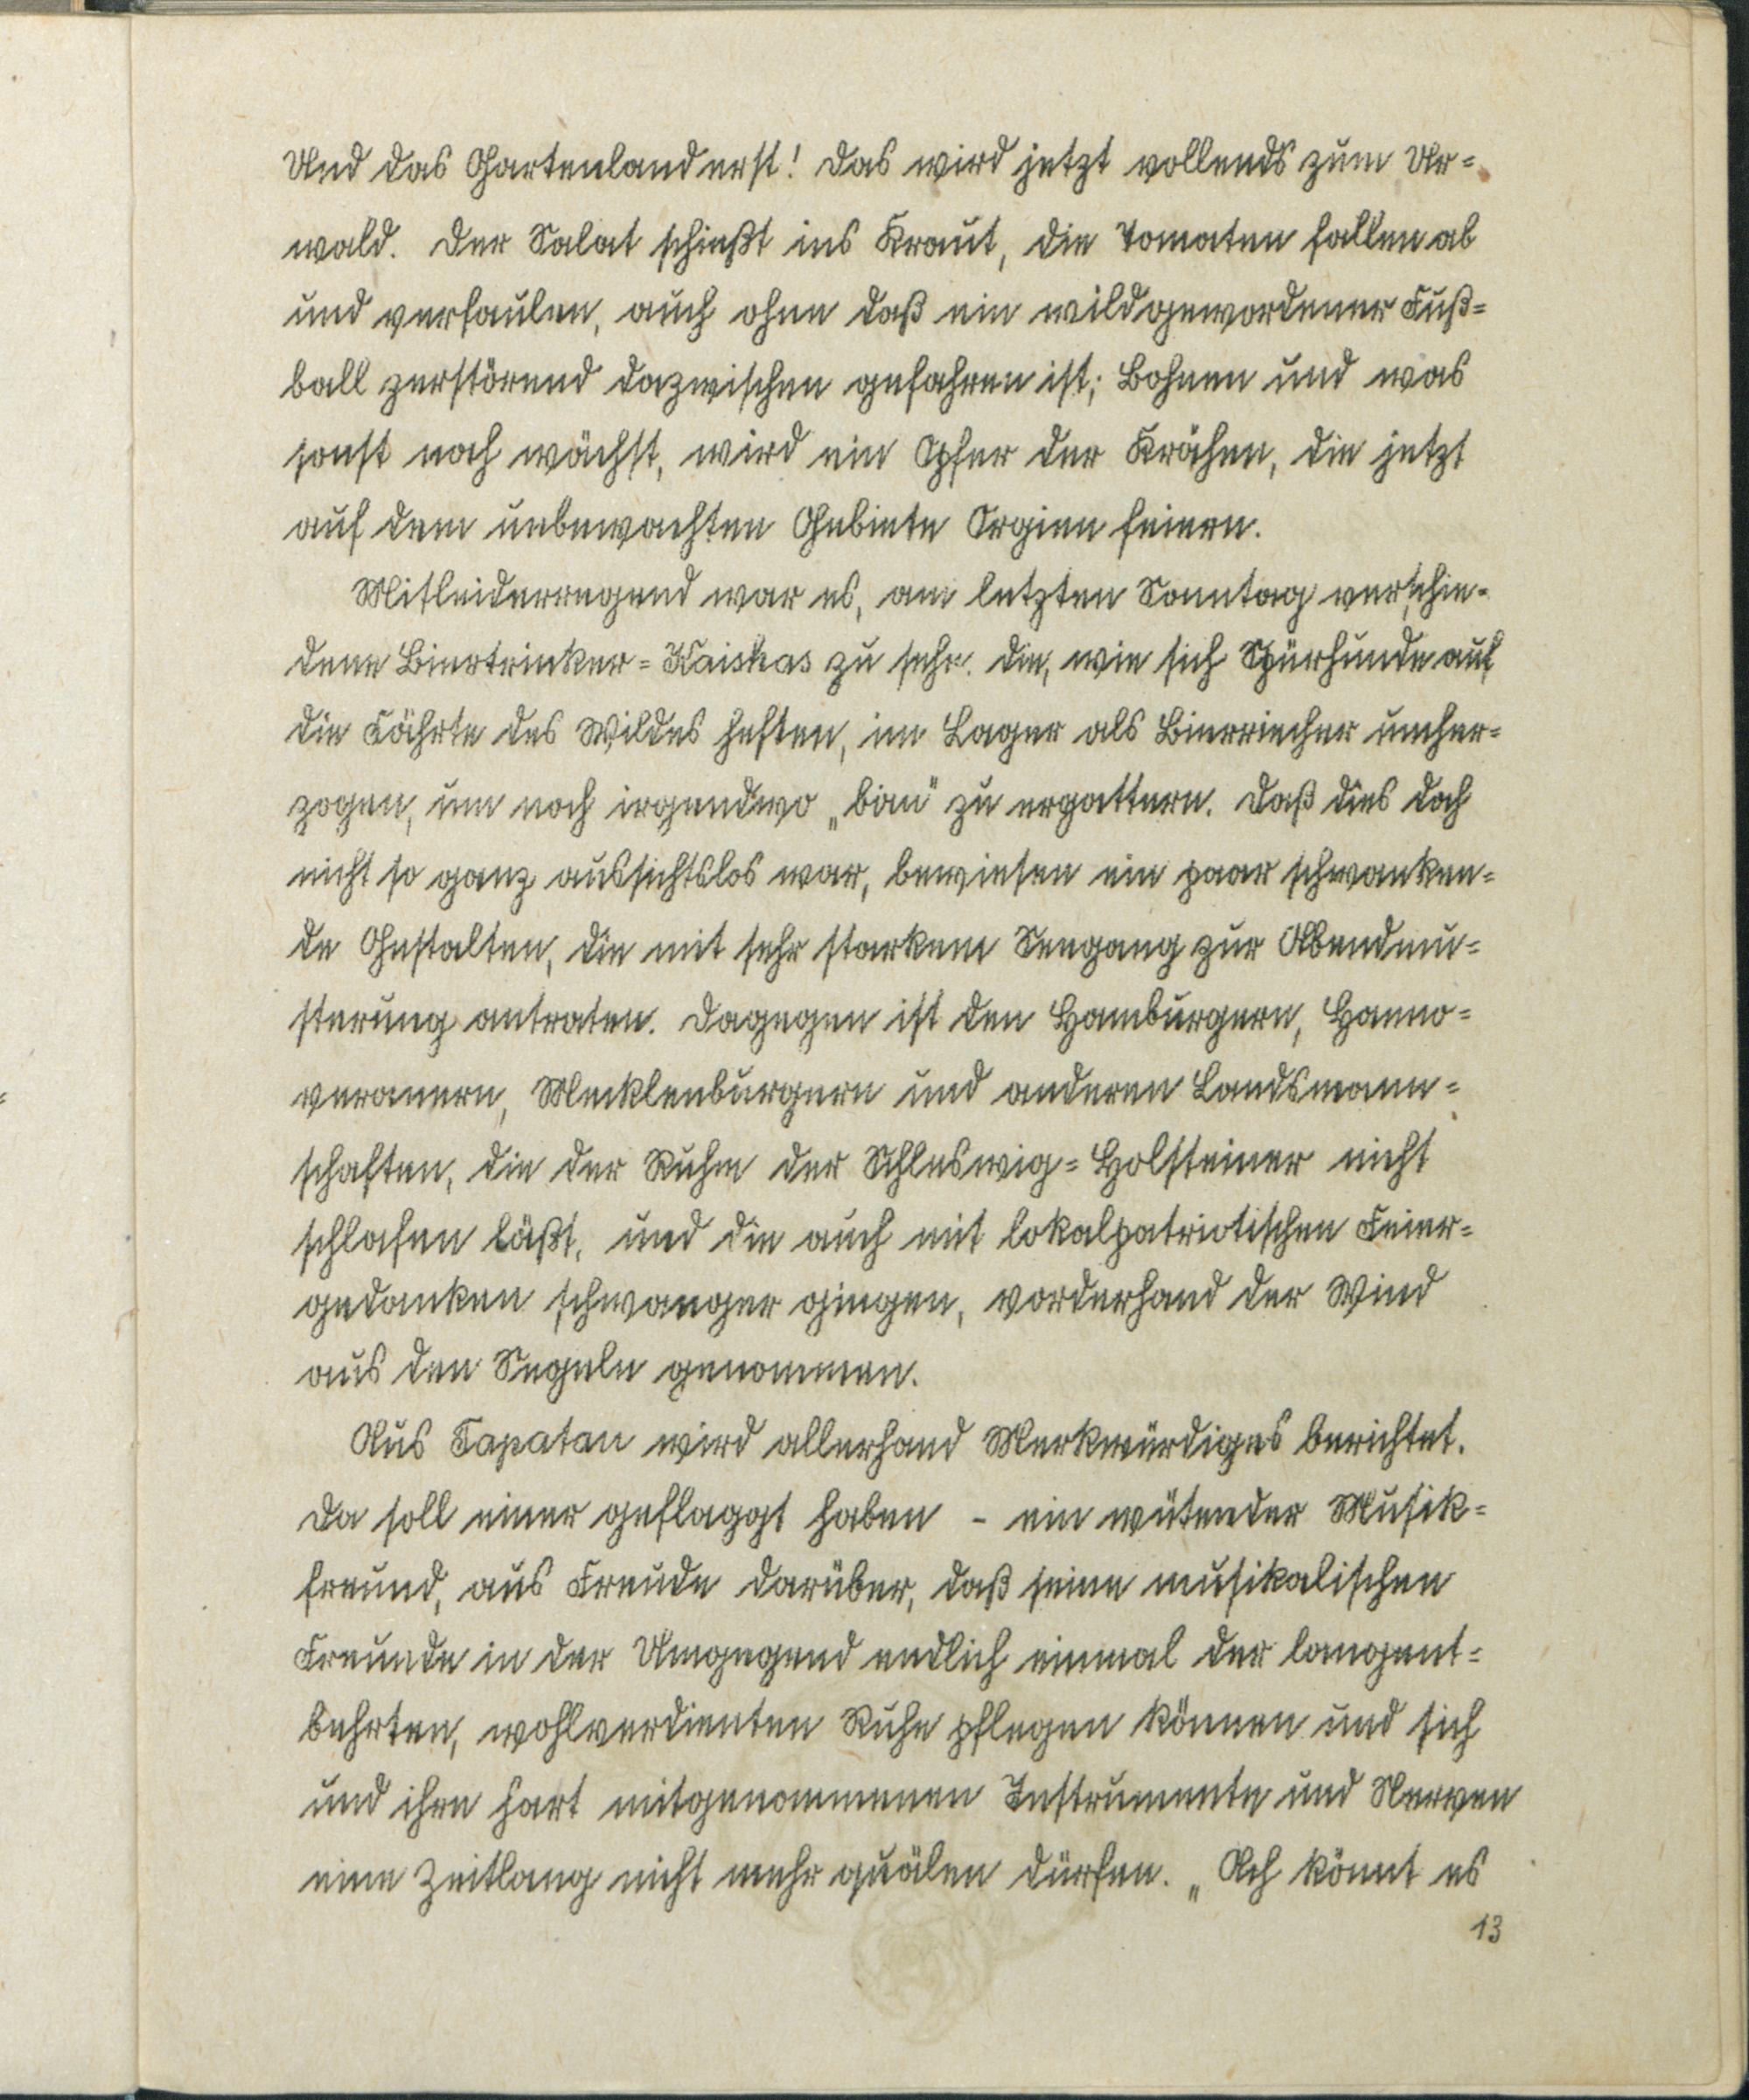 Und das Gartenland erst! Das wird jetzt vollends zum Ur=
wald. Der Salat schießt ins Kraut, die Tomaten fallen ab
und verfaulen, auch ohne daß ein wildgewordener Fuß=
ball zerstörend dazwischen gefahren ist; Bohnen und was
sonst noch wächst, wird ein Opfer der Krähen, die jetzt
auf dem unbewachten Gebiete Orgien feiern.
Mitleiderregend war es, am letzten Sonntag verschie=
dene Biertrinker=Kaishas zu sehn. die, wie sich Spürhunde auf
die Fährte des Wildes heften, im Lager als Bierriecher umher=
zogen, um noch irgendwo „biru" zu ergattern. Daß dies doch
nicht so ganz aussichtslos war, bewiesen ein paar schwanken=
de Gestalten, die mit sehr starkem Seegang zur Abendmu=
sterung antraten. Dagegen ist den Hamburgern, Hanno=
veranern, Mecklenburgern und anderen Landsmann=
schaften, die der Ruhm der Schleswig=Holsteiner nicht
schlafen läßt, und die auch mit lokalpatriotischen Feier=
gedanken schwanger gingen, vorderhand der Wind
aus den Segeln genommen.
Aus Tapatau wird allerhand Merkwürdiges berichtet.
Da soll einer geflaggt haben - ein wütender Musik=
freund, aus Freude darüber, daß seine musikalischen
Freunde in der Umgegend endlich einmal der langent=
behrten, wohlverdienten Ruhe pflegen können und sich
und ihre hart mitgenommenen Instrumente und Nerven
eine Zeitlang nicht mehr quälen dürfen. „Ach könnt es
13